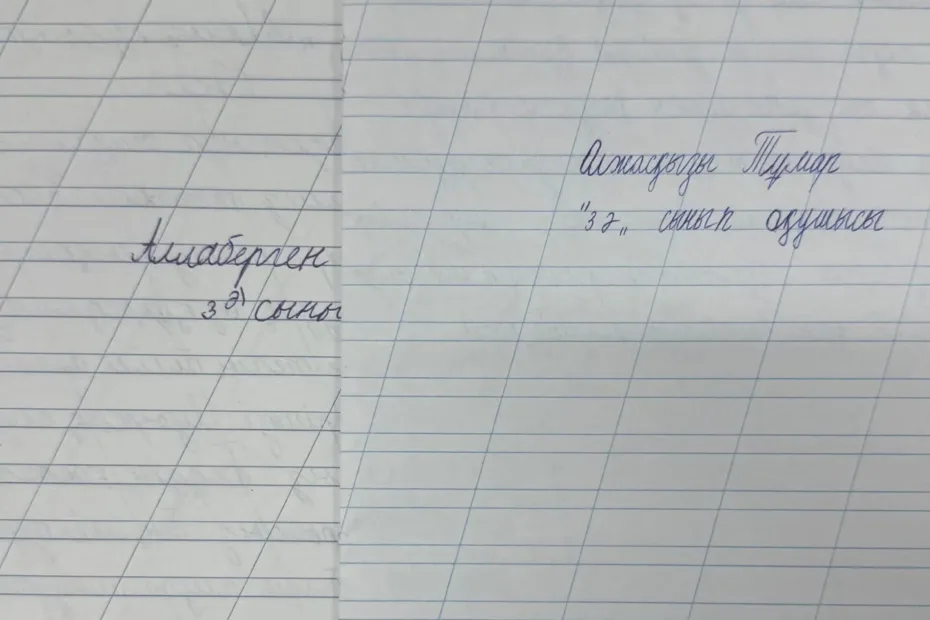 Аллаберген
3 "Ә" сыны
Тұмар
"3 ә" сынып оқушысы